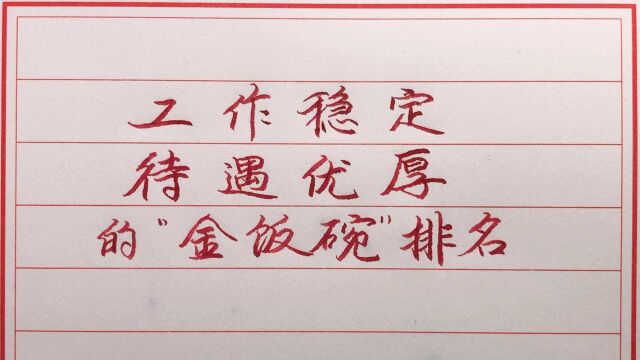 工作稳定
待遇优厚
的“金饭碗”排名